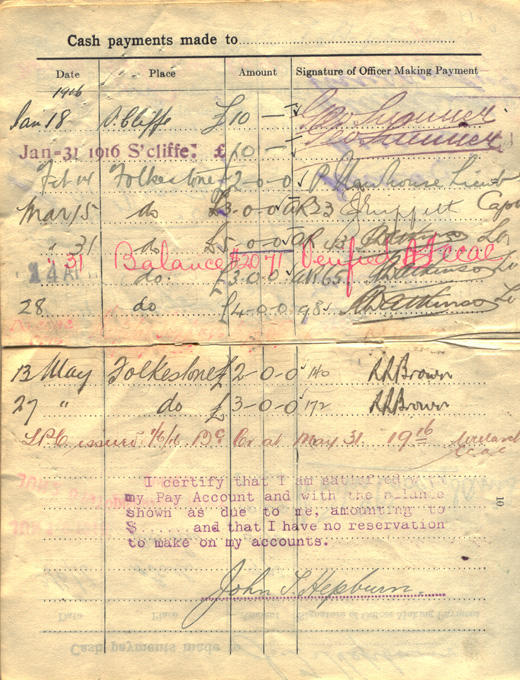 Cash payments made to
Date Place Amount Signature of Officer Making Payment
1916
Jan 18 S.Cliffe £10 — Geo Sumner
Jan-31 1916 S'cliffe: £10 — Geo Sumner
Feb 14 Folkestone £2-0-0 Lieut
Mar 15 do £3-0-0 AR 23 Capt
" 31 do £ -0-0 AR
" 31 Balance $20 71 Verified
do. £3-0-0 AR 65 Atkinson Lt
28 do £4-0-0 98 Atkinso Lt
13 May Folkestone £2-0-0 140 RRBrown
27 " do £3-0-0 172 RRBrown
L.P.C issued Cr at May 31 1916
10
I certify that I am satisfied
my Pay Account and with the balance
shown as due to me, amounting to
$...... and that I have no reservation
to make on my accounts.
John T. Hepburn